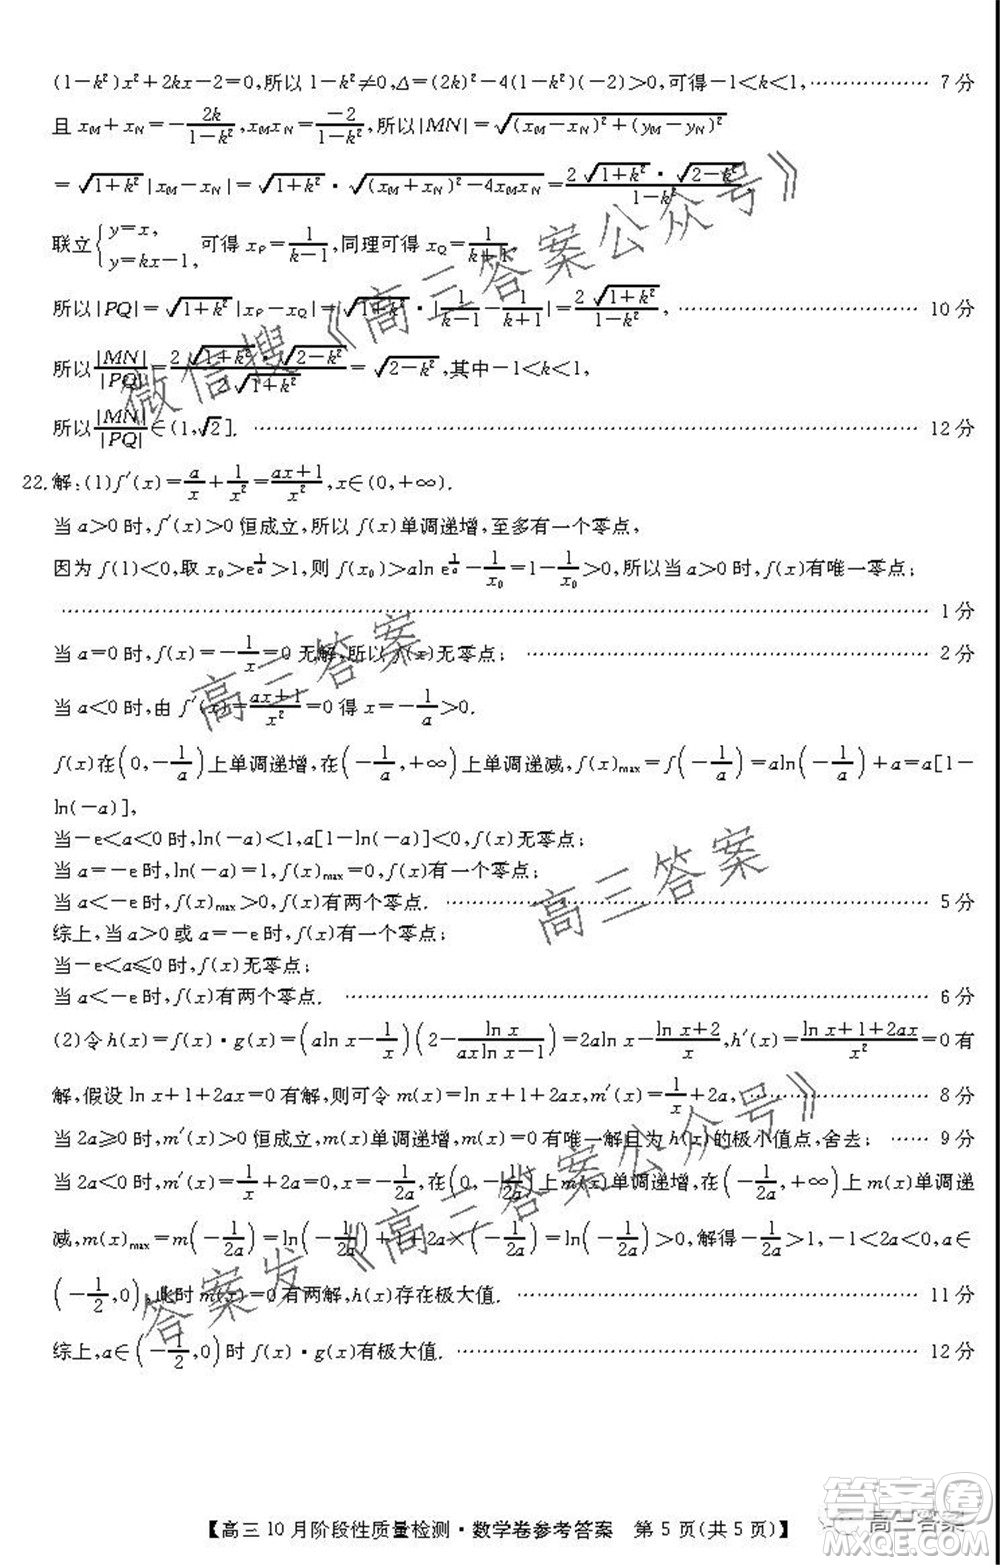 (1-k²)x²+2kx-2=0,所以 1-k²≠0,Δ=(2k)²-4(1-k²)(-2)>0,可得-1<k<1,………………… 7 分
且 x_M+x_N=-2k/(1-k²),x_Mx_N=-2/(1-k²),所以|MN|=√((x_M-x_N)²+(y_M-y_N)²)
=√(1+k²)|x_M-x_N|=√(1+k²)·√((x_M+x_N)²-4x_Mx_N)=2√(1+k²)·√(2-k²)/(1-k²)
联立{y=x, y=kx-1, 可得 x_P=1/(k-1),同理可得 x_Q=1/(k+1),
所以|PQ|=√(1+k²)|x_P-x_Q|=√(1+k²)·|1/(k-1)-1/(k+1)|=2√(1+k²)/(1-k²), ………………… 10 分
所以|MN|/|PQ|=2√(1+k²)·√(2-k²)/(2√(1+k²))=√(2-k²),其中-1<k<1,
所以|MN|/|PQ|∈(1,√2]. ………………… 12 分
22.解:(1)f′(x)=a/x+1/x²=(ax+1)/x²,x∈(0,+∞).
当 a>0 时,f′(x)>0 恒成立,所以 f(x)单调递增,至多有一个零点,
因为 f(1)<0,取 x₀>e^(1/a)>1,则 f(x₀)>aln e^(1/a)-1/x₀=1-1/x₀>0,所以当 a>0 时,f(x)有唯一零点;
………………… 1 分
当 a=0 时,f(x)=-1/x=0 无解,所以 f(x)无零点; ………………… 2 分
当 a<0 时,由 f′(x)=(ax+1)/x²=0 得 x=-1/a>0.
f(x)在(0,-1/a)上单调递增,在(-1/a,+∞)上单调递减,f(x)max=f(-1/a)=aln(-1/a)+a=a[1-
ln(-a)],
当-e<a<0 时,ln(-a)<1,a[1-ln(-a)]<0,f(x)无零点;
当 a=-e 时,ln(-a)=1,f(x)max=0,f(x)有一个零点;
当 a<-e 时,f(x)max>0,f(x)有两个零点. ………………… 5 分
综上,当 a>0 或 a=-e 时,f(x)有一个零点;
当-e<a≤0 时,f(x)无零点;
当 a<-e 时,f(x)有两个零点. ………………… 6 分
(2)令 h(x)=f(x)·g(x)=(aln x-1/x)(2-ln x/(axln x-1))=2aln x-(ln x+2)/x,h′(x)=(ln x+1+2ax)/x²=0 有
解,假设 ln x+1+2ax=0 有解,则可令 m(x)=ln x+1+2ax,m′(x)=1/x+2a, ………………… 8 分
当 2a≥0 时,m′(x)>0 恒成立,m(x)单调递增,m(x)=0 有唯一解且为 h(x)的极小值点,舍去; …… 9 分
当 2a<0 时,m′(x)=1/x+2a=0,x=-1/2a,在(0,-1/2a)上 m(x)单调递增,在(-1/2a,+∞)上 m(x)单调递
减,m(x)max=m(-1/2a)=ln(-1/2a)+1+2a×(-1/2a)=ln(-1/2a)>0,解得-1/2a>1,-1<2a<0,a∈
(-1/2,0),此时 m(x)=0 有两解,h(x)存在极大值. ………………… 11 分
综上,a∈(-1/2,0)时 f(x)·g(x)有极大值. ………………… 12 分
微信搜《高三答案公众号》
高三答案
高三答案
答案发《高三答案公众号》
【高三 10 月阶段性质量检测·数学卷参考答案　第 5 页(共 5 页)】
高三答案
答案圈